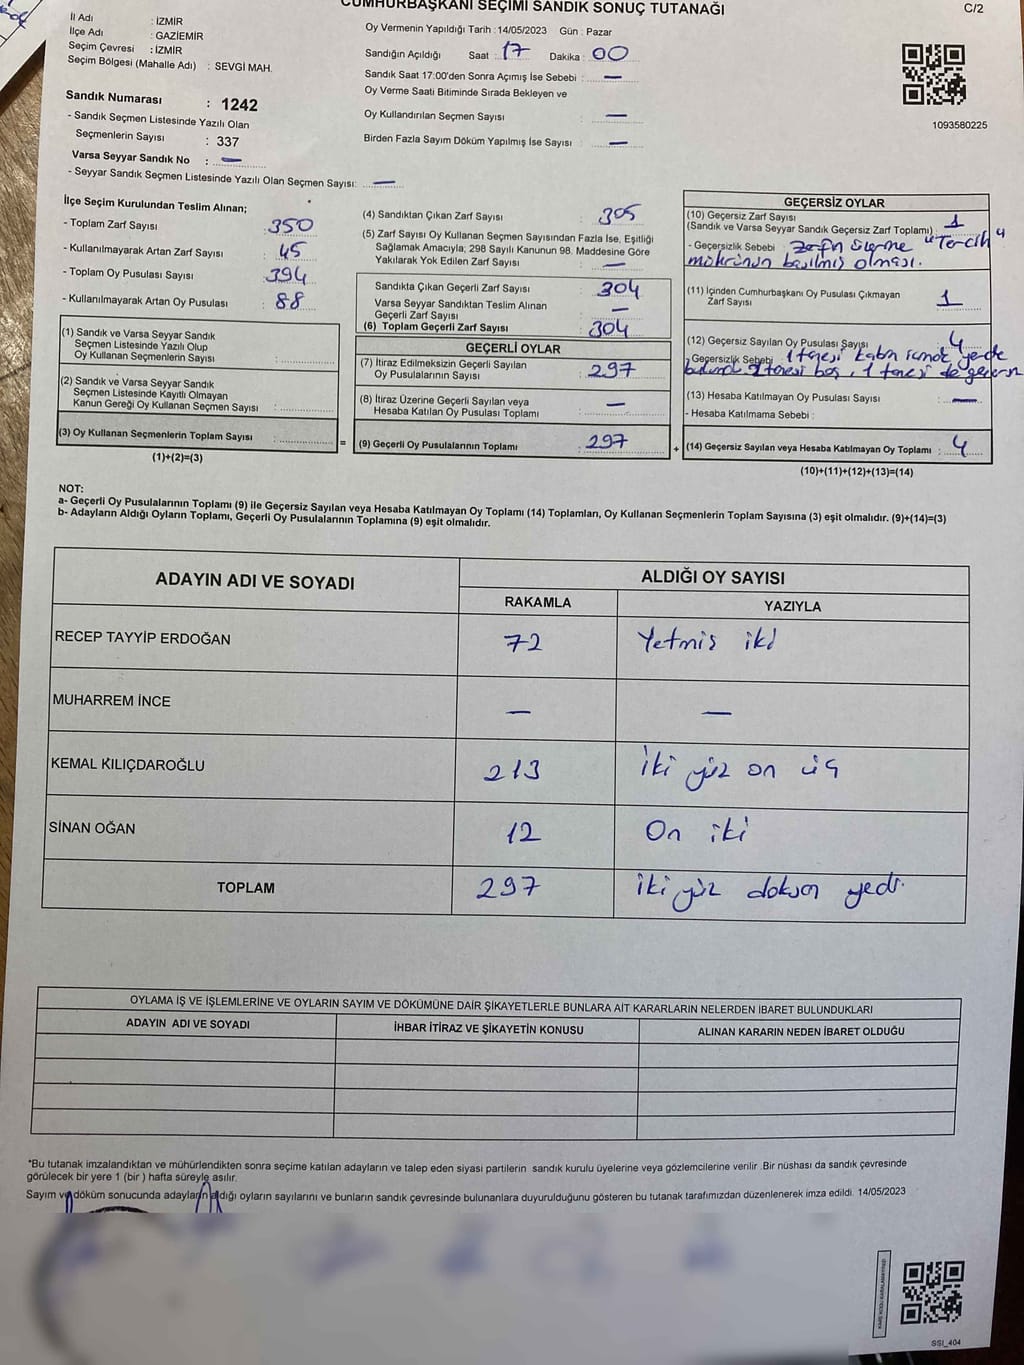 CUMHURBAŞKANI SEÇİMİ SANDIK SONUÇ TUTANAĞI
C/2
İl Adı : İZMİR
İlçe Adı : GAZİEMİR
Seçim Çevresi : İZMİR
Seçim Bölgesi (Mahalle Adı) : SEVGİ MAH.
Sandık Numarası : 1242
- Sandık Seçmen Listesinde Yazılı Olan
Seçmenlerin Sayısı : 337
Varsa Seyyar Sandık No : —
- Seyyar Sandık Seçmen Listesinde Yazılı Olan Seçmen Sayısı: —
Oy Vermenin Yapıldığı Tarih : 14/05/2023 Gün : Pazar
Sandığın Açıldığı Saat : 17 Dakika : 00
Sandık Saat 17:00'den Sonra Açımış İse Sebebi : —
Oy Verme Saati Bitiminde Sırada Bekleyen ve
Oy Kullandırılan Seçmen Sayısı : —
Birden Fazla Sayım Döküm Yapılmış İse Sayısı : —
1093580225
İlçe Seçim Kurulundan Teslim Alınan;
- Toplam Zarf Sayısı : 350
- Kullanılmayarak Artan Zarf Sayısı : 45
- Toplam Oy Pusulası Sayısı : 394
- Kullanılmayarak Artan Oy Pusulası : 88
(1) Sandık ve Varsa Seyyar Sandık
Seçmen Listesinde Yazılı Olup
Oy Kullanan Seçmenlerin Sayısı :
(2) Sandık ve Varsa Seyyar Sandık
Seçmen Listesinde Kayıtlı Olmayan
Kanun Gereği Oy Kullanan Seçmen Sayısı :
(3) Oy Kullanan Seçmenlerin Toplam Sayısı :
(1)+(2)=(3)
(4) Sandıktan Çıkan Zarf Sayısı : 305
(5) Zarf Sayısı Oy Kullanan Seçmen Sayısından Fazla İse, Eşitliği
Sağlamak Amacıyla; 298 Sayılı Kanunun 98. Maddesine Göre
Yakılarak Yok Edilen Zarf Sayısı : —
Sandıkta Çıkan Geçerli Zarf Sayısı : 304
Varsa Seyyar Sandıktan Teslim Alınan
Geçerli Zarf Sayısı : —
(6) Toplam Geçerli Zarf Sayısı : 304
GEÇERLİ OYLAR
(7) İtiraz Edilmeksizin Geçerli Sayılan
Oy Pusulalarının Sayısı : 297
(8) İtiraz Üzerine Geçerli Sayılan veya
Hesaba Katılan Oy Pusulası Toplamı : —
= (9) Geçerli Oy Pusulalarının Toplamı : 297
GEÇERSİZ OYLAR
(10) Geçersiz Zarf Sayısı
(Sandık ve Varsa Seyyar Sandık Geçersiz Zarf Toplamı) : 1
- Geçersizlik Sebebi : Zarfın üzerine "Tercih"
mührünün basılmış olması.
(11) İçinden Cumhurbaşkanı Oy Pusulası Çıkmayan
Zarf Sayısı : 1
(12) Geçersiz Sayılan Oy Pusulası Sayısı : 4
- Geçersizlik Sebebi : 1 tanesi kabin yerde
2 tanesi boş, 1 tanesi de
(13) Hesaba Katılmayan Oy Pusulası Sayısı : —
- Hesaba Katılmama Sebebi :
+ (14) Geçersiz Sayılan veya Hesaba Katılmayan Oy Toplamı : 4
(10)+(11)+(12)+(13)=(14)
NOT:
a- Geçerli Oy Pusulalarının Toplamı (9) ile Geçersiz Sayılan veya Hesaba Katılmayan Oy Toplamı (14) Toplamları, Oy Kullanan Seçmenlerin Toplam Sayısına (3) eşit olmalıdır. (9)+(14)=(3)
b- Adayların Aldığı Oyların Toplamı, Geçerli Oy Pusulalarının Toplamına (9) eşit olmalıdır.
ADAYIN ADI VE SOYADI ALDIĞI OY SAYISI
RAKAMLA YAZIYLA
RECEP TAYYİP ERDOĞAN 72 Yetmiş iki
MUHARREM İNCE — —
KEMAL KILIÇDAROĞLU 213 iki yüz on üç
SİNAN OĞAN 12 On iki
TOPLAM 297 iki yüz doksan yedi.
OYLAMA İŞ VE İŞLEMLERİNE VE OYLARIN SAYIM VE DÖKÜMÜNE DAİR ŞİKAYETLERLE BUNLARA AİT KARARLARIN NELERDEN İBARET BULUNDUKLARI
ADAYIN ADI VE SOYADI İHBAR İTİRAZ VE ŞİKAYETİN KONUSU ALINAN KARARIN NEDEN İBARET OLDUĞU
*Bu tutanak imzalandıktan ve mühürlendikten sonra seçime katılan adayların ve talep eden siyasi partilerin sandık kurulu üyelerine veya gözlemcilerine verilir .Bir nüshası da sandık çevresinde
görülecek bir yere 1 (bir ) hafta süreyle asılır.
Sayım ve döküm sonucunda adayların aldığı oyların sayılarını ve bunların sandık çevresinde bulunanlara duyurulduğunu gösteren bu tutanak tarafımızdan düzenlenerek imza edildi. 14/05/2023
SSİ_404